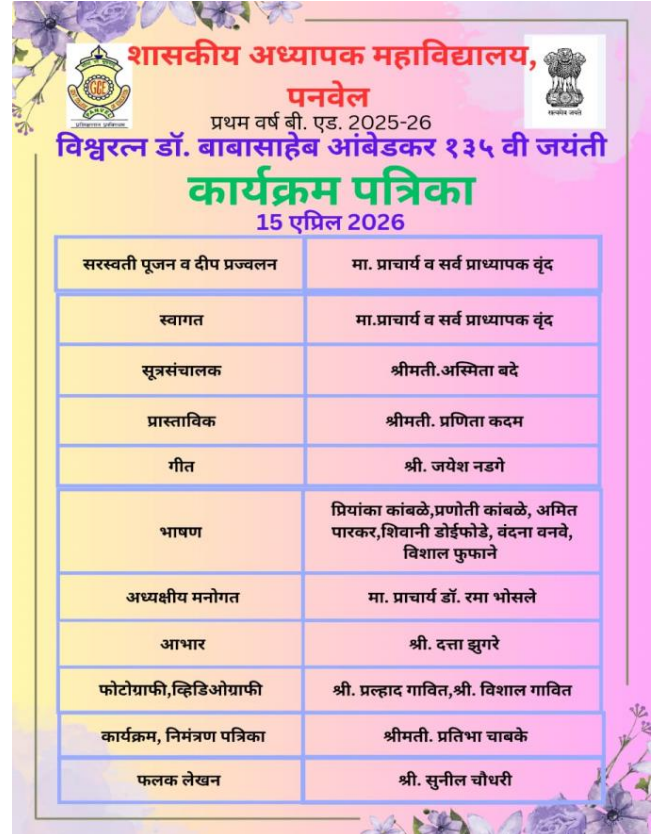 शासकीय अध्यापक महाविद्यालय,
पनवेल
प्रथम वर्ष बी. एड. 2025-26
विश्वरत्न डॉ. बाबासाहेब आंबेडकर १३५ वी जयंती
कार्यक्रम पत्रिका
15 एप्रिल 2026
सरस्वती पूजन व दीप प्रज्वलन मा. प्राचार्य व सर्व प्राध्यापक वृंद
स्वागत मा.प्राचार्य व सर्व प्राध्यापक वृंद
सूत्रसंचालक श्रीमती.अस्मिता बदे
प्रास्ताविक श्रीमती. प्रणिता कदम
गीत श्री. जयेश नडगे
भाषण प्रियांका कांबळे,प्रणोती कांबळे, अमित
पारकर,शिवानी डोईफोडे, वंदना वनवे,
विशाल फुफाने
अध्यक्षीय मनोगत मा. प्राचार्य डॉ. रमा भोसले
आभार श्री. दत्ता झुगरे
फोटोग्राफी,व्हिडिओग्राफी श्री. प्रल्हाद गावित,श्री. विशाल गावित
कार्यक्रम, निमंत्रण पत्रिका श्रीमती. प्रतिभा चाबके
फलक लेखन श्री. सुनील चौधरी